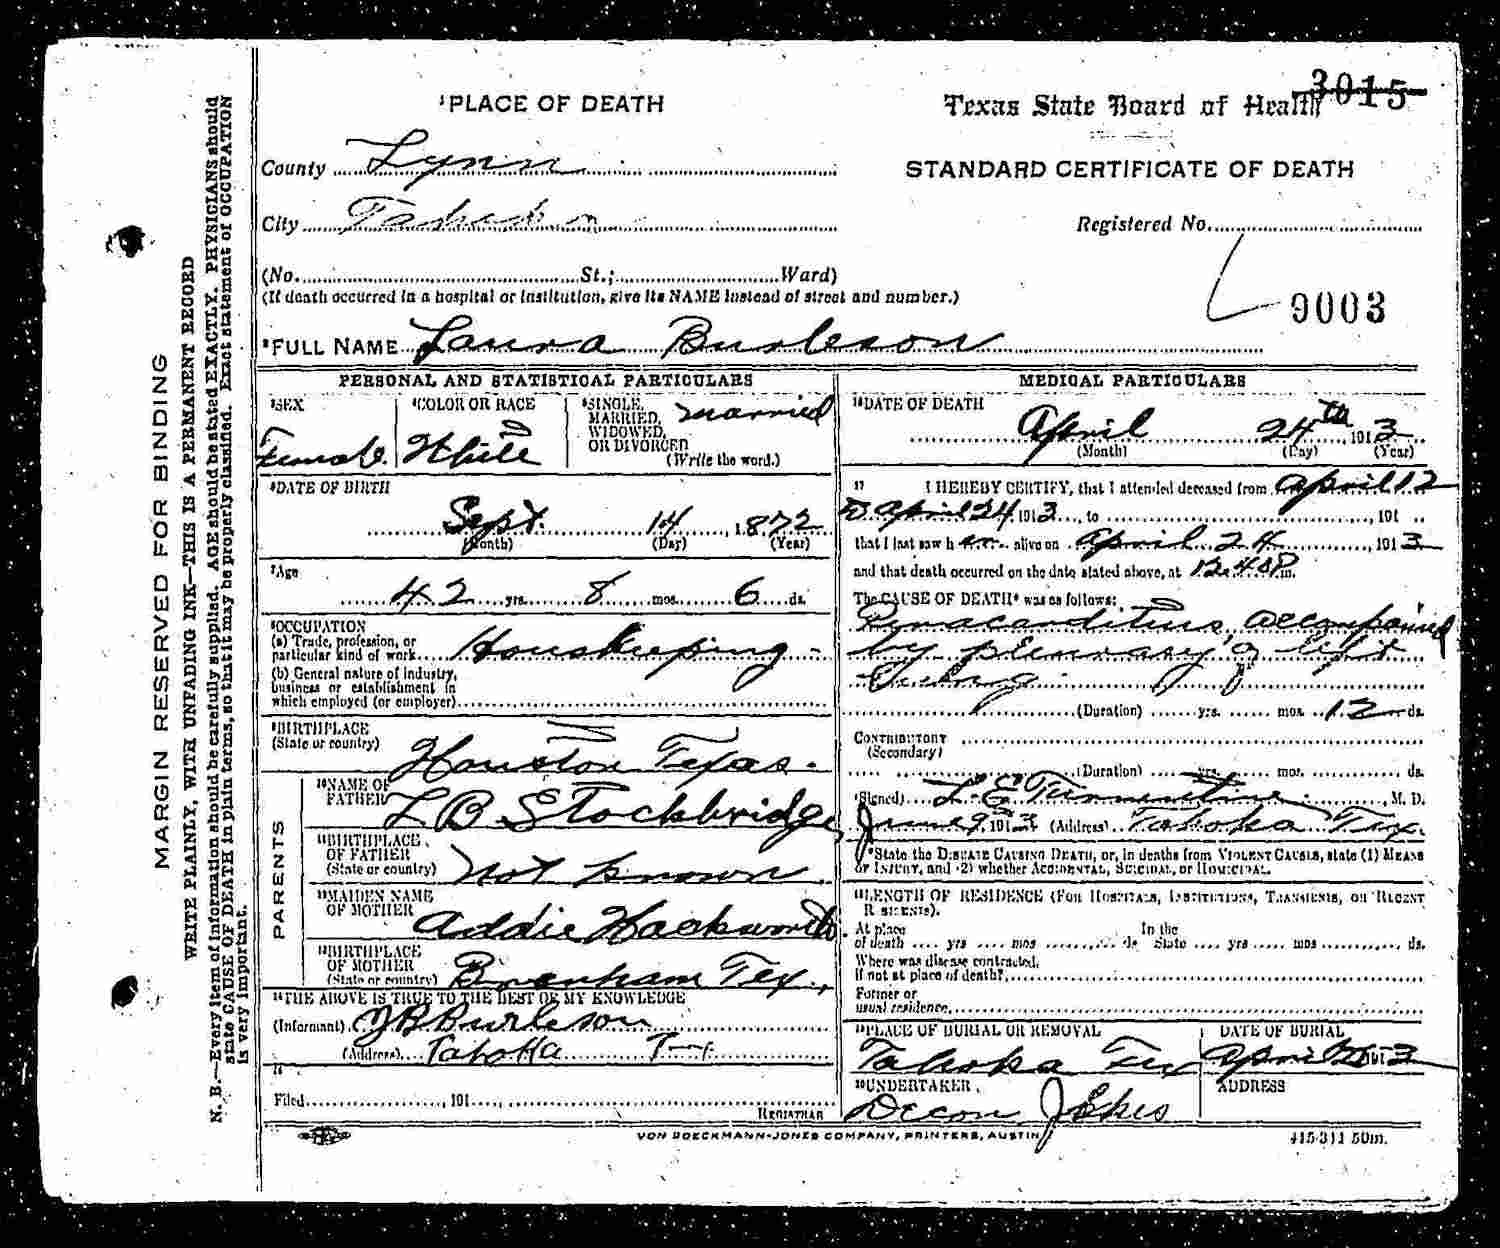 3015
¹PLACE OF DEATH
Texas State Board of Health
County Lynn
STANDARD CERTIFICATE OF DEATH
City
Registered No.
(No. St.; Ward)
(If death occurred in a hospital or institution, give its NAME instead of street and number.)
9003
²FULL NAME Laura Burleson
PERSONAL AND STATISTICAL PARTICULARS
³SEX
Female
⁴COLOR OR RACE
White
⁵SINGLE,
MARRIED,
WIDOWED,
OR DIVORCED
married
(Write the word.)
⁶DATE OF BIRTH
Sept. 14, 1872
(Month) (Day) (Year)
⁷Age
42 yrs. 8 mos. 6 ds.
⁸OCCUPATION
(a) Trade, profession, or
particular kind of work Housekeeping
(b) General nature of industry,
business or establishment in
which employed (or employer)
⁹BIRTHPLACE
(State or country)
Houston Texas.
PARENTS
¹⁰NAME OF
FATHER L B Stockbridge
¹¹BIRTHPLACE
OF FATHER
(State or country) Not known
¹²MAIDEN NAME
OF MOTHER Addie Hacksworth
¹³BIRTHPLACE
OF MOTHER
(State or country) Brenham Tex.,
¹⁴THE ABOVE IS TRUE TO THE BEST OF MY KNOWLEDGE
(Informant) J B Burleson
(Address)
15
Filed, 191
REGISTRAR
MEDICAL PARTICULARS
¹⁶DATE OF DEATH
April 24th 1913
(Month) (Day) (Year)
17 I HEREBY CERTIFY, that I attended deceased from April 12
to April 24 1913, to, 191
that I last saw her alive on April 24, 1913
and that death occurred on the date stated above, at 12.40 P m.
The CAUSE OF DEATH* was as follows:
accompanied
by of left
Lung
(Duration) yrs. mos. 12 ds.
CONTRIBUTORY
(Secondary)
(Duration) yrs. mos. ds.
(Signed) L. E. Turrentine, M. D.
June 9, 1913 (Address) Tahoka Tex.
*State the DISEASE CAUSING DEATH, or, in deaths from VIOLENT CAUSES, state (1) MEANS
OF INJURY, and (2) whether ACCIDENTAL, SUICIDAL, or HOMICIDAL.
¹⁸LENGTH OF RESIDENCE (FOR HOSPITALS, INSTITUTIONS, TRANSIENTS, OR RECENT
RESIDENTS).
At place In the
of death yrs mos ds State yrs mos ds.
Where was disease contracted,
if not at place of death?
Former or
usual residence
¹⁹PLACE OF BURIAL OR REMOVAL
Tahoka Tex
DATE OF BURIAL
April 1913
²⁰UNDERTAKER
ADDRESS
VON BOECKMANN-JONES COMPANY, PRINTERS, AUSTIN
415-311 50m.
MARGIN RESERVED FOR BINDING
WRITE PLAINLY, WITH UNFADING INK—THIS IS A PERMANENT RECORD
N. B.—Every item of information should be carefully supplied. AGE should be stated EXACTLY. PHYSICIANS should
state CAUSE OF DEATH in plain terms, so that it may be properly classified. Exact statement of OCCUPATION
is very important.